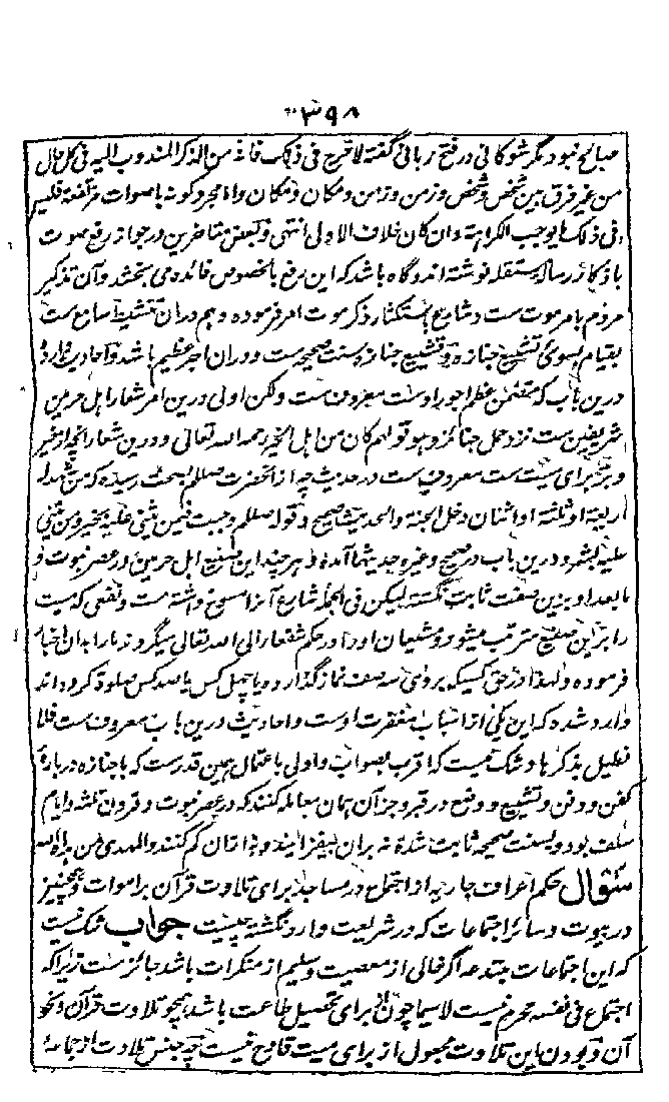 ۳۹۸
صالح نبود دیگر شوکانی در فتح ربانی گفته لا حرج فی ذلک فانه من الذکر المندوب الیه فی کل حال
من غیر فرق بین شخص و شخص و زمن و زمن و مکان و مکان و اما مجرد کونه باصوات مرتفعة فلیس
فی ذلک ما یوجب الکراهة و ان کان خلاف الاولی انتهی و بعض متاخرین در جواز رفع صوت
باذکار رساله مستقله نوشته اند و گاه باشد که این رفع بالخصوص فائده می بخشد و آن تذکیر
مردم بامر موت ست و شارع باستکثار ذکر موت امر فرموده و هم دران تنشیط سامع ست
بقیام بسوی تشییع جنازه و تشییع جنازه سنت صحیحه ست و دران اجر عظیم باشد و احادیث وارده
درین باب که متضمن عظم اجور اوست معروف ست ولکن اولی درین امر شعار اهل حرمین
شریفین ست نزد حمل جنائز و هو قولهم کان من اهل الخیر رحمه الله تعالی و درین شعار آنچه از خیر
و بر برای میت ست معروف ست در حدیث چه از آنحضرت صلعم بصحت رسیده که من شهد له
اربعة او ثلثة او اثنان دخل الجنة والحدیث صحیح و قوله صلعم وجبت فیمن یثنی علیه بخیر و من یثنی
علیه بشر و درین باب در صحیح و غیره حدیثها آمده و هر چند این صنیع اهل حرمین در عصر نبوت و
ما بعد او برین صفت ثابت نگشته لیکن فی الجمله شارع آنرا مسوغ داشته ست و نفعی که میت
را بر این صنیع مترتب میشود و مشیعان او را در حکم شفعا الی الله تعالی میگرداند ما را بدان اخبار
فرموده و لهذا در حق کسیکه بر وی سه صف نماز گذارد و یا چهل کس یا صد کس صلوة کرده اند
وارد شده که این یکی از اسباب مغفرت اوست و احادیث درین باب معروف ست فلا
نطیل بذکرها و شک نیست که اقرب بصواب و اولی باعتمال همین قدر ست که با جنازه درباره
کفن و دفن و تشییع و وضع در قبر و جز آن همان معامله کنند که در عصر نبوت و قرون ثلثه و ایام
سلف بود و بسنت صحیحه ثابت شده نه بران بیفزایند و نه ازان کم کنند والمهدی من هداه الله
سؤال حکم اعراف جاریه از اجتماع در مساجد برای تلاوت قرآن بر اموات و همچنین
در بیوت و سائر اجتماعات که در شریعت وارد نگشته چیست جواب شک نیست
که این اجتماعات مبتدعه اگر خالی از معصیت و سلیم از منکرات باشد جائز ست زیرا که
اجتماع فی نفسه محرم نیست لا سیما چون برای تحصیل طاعت باشد همچو تلاوت قرآن و نحو
آن و بودن این تلاوت مجعول از برای میت قادح نیست چه جنس تلاوت از جماعه